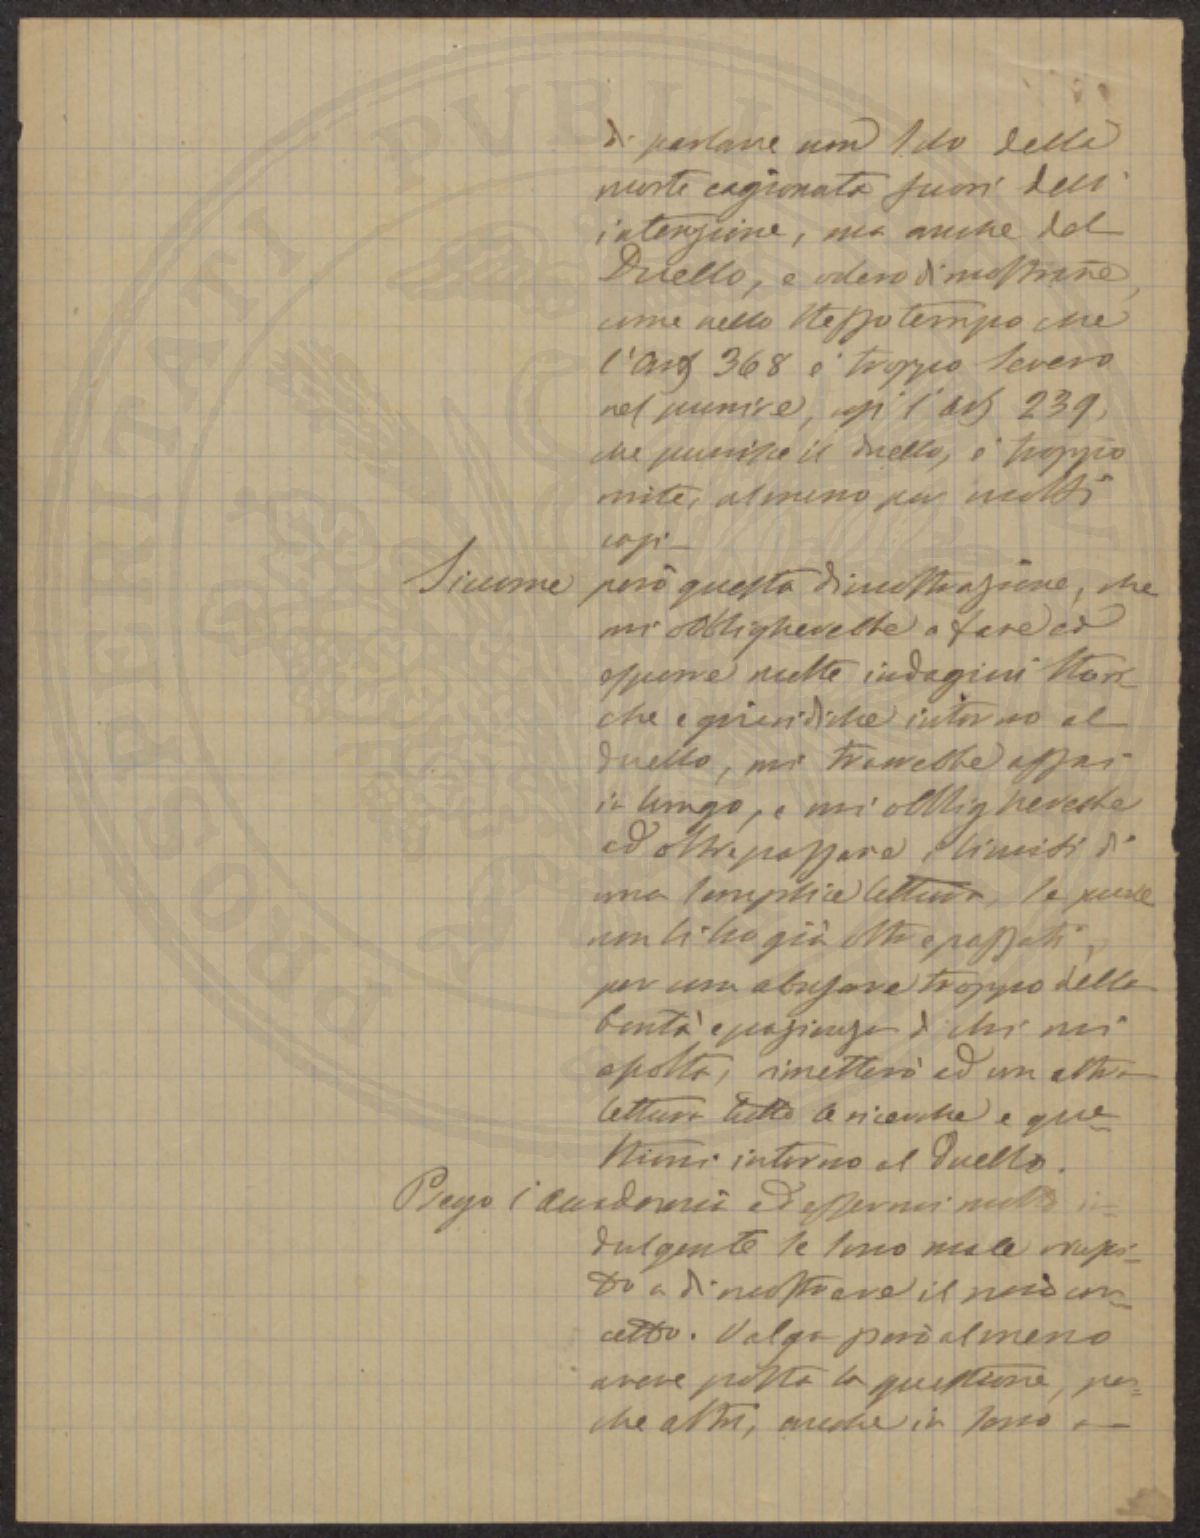 di parlare non solo della
morte cagionata fuori dell'
intenzione, ma anche del
Duello, e volevo dimostrare,
come nello stesso tempo che
l'Art 368 è troppo severo
nel punire, così l'art 239,
che punisce il duello, è troppo
mite, almeno per molti
casi
Siccome però questa dimostrazione, che
mi obbligherebbe a fare ed
esporre molte indagini stori
che e giuridiche intorno al
duello, mi trarrebbe assai
in lungo, e mi obbligherebbe
ad oltrepassare i limiti di
una semplice lettura, se pure
non li ho già oltrepassati,
per non abusare troppo della
bontà e pazienza di chi mi
ascolta, rimetterò ad un altra
lettura tutte le ricerche e que=
stioni intorno al Duello.
Prego l'accademia ad essermi molto in=
dulgente se sono male
a dimostrare il mio con=
cetto. Valga però almeno
avere posta la questione, per=
che altri, anche in senso a